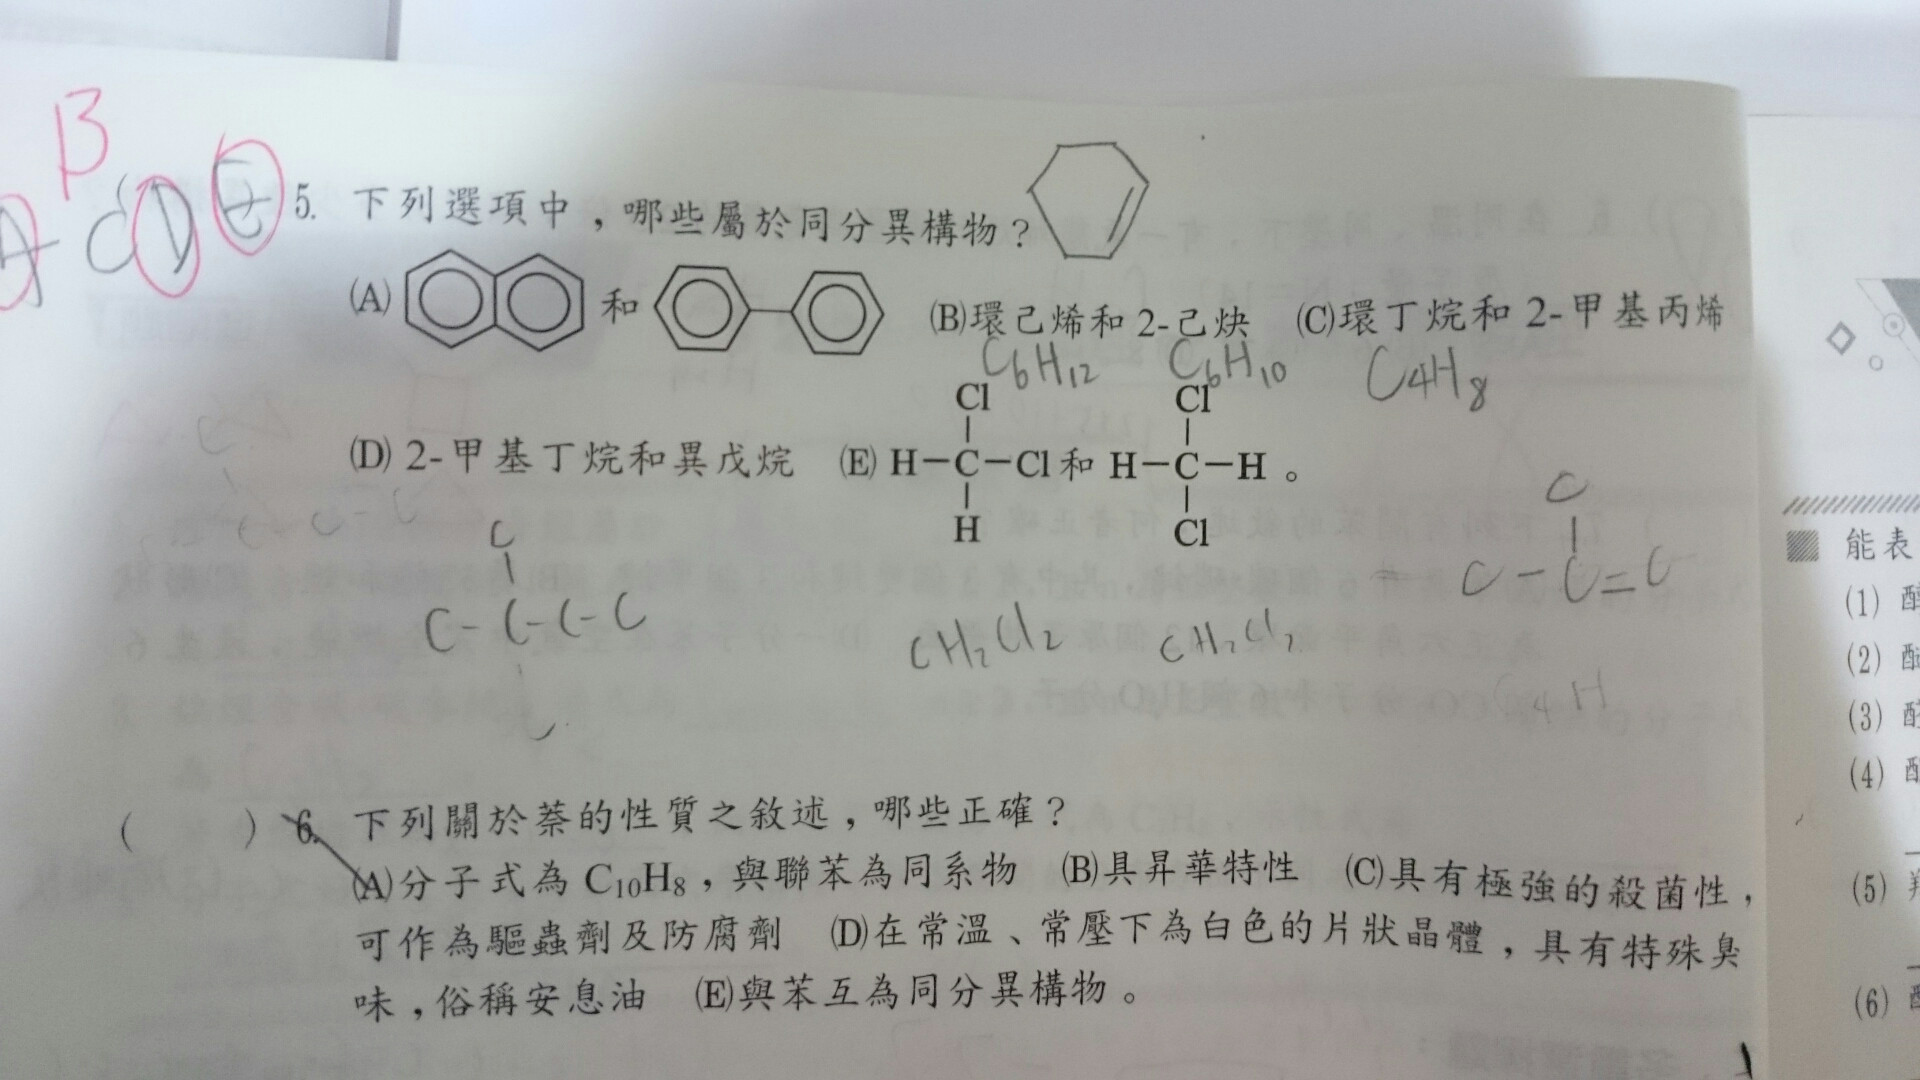 B
A C D E
5. 下列選項中，哪些屬於同分異構物？
(A) 和 (B)環己烯和2-己炔 (C)環丁烷和2-甲基丙烯
C6H12 C6H10 C4H8
(D) 2-甲基丁烷和異戊烷 (E) H－C－Cl和H－C－H。
Cl Cl
H Cl
C
C-C-C-C
C
C-C=C
CH2Cl2 CH2Cl2
C4H
( ) 6. 下列關於萘的性質之敘述，哪些正確？
(A)分子式為C10H8，與聯苯為同系物 (B)具昇華特性 (C)具有極強的殺菌性，
可作為驅蟲劑及防腐劑 (D)在常溫、常壓下為白色的片狀晶體，具有特殊臭
味，俗稱安息油 (E)與苯互為同分異構物。
能表
(1)
(2)
(3)
(4)
(5)
(6)